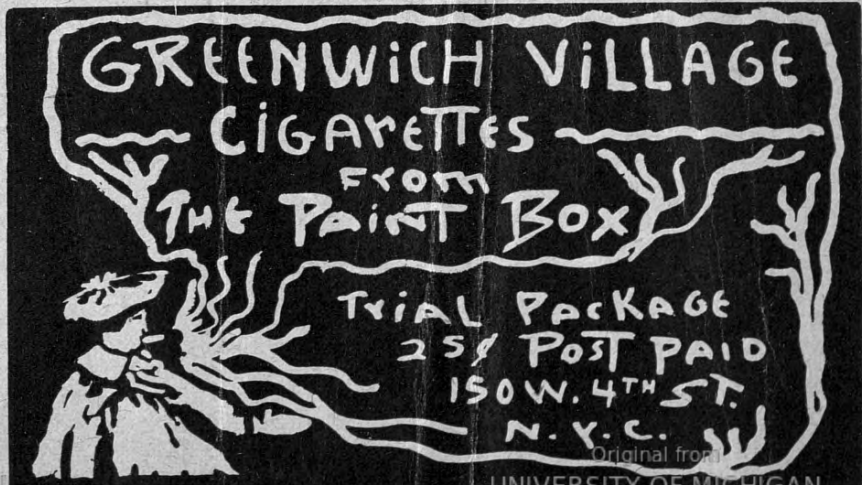 GREENWiCH ViLLAGE
CiGArETTES
From
THE PAiNT BOX
TriAL PAcKAGE
25¢ POST PAID
150 W. 4TH ST.
N.Y.C.
Original from
UNIVERSITY OF MICHIGAN